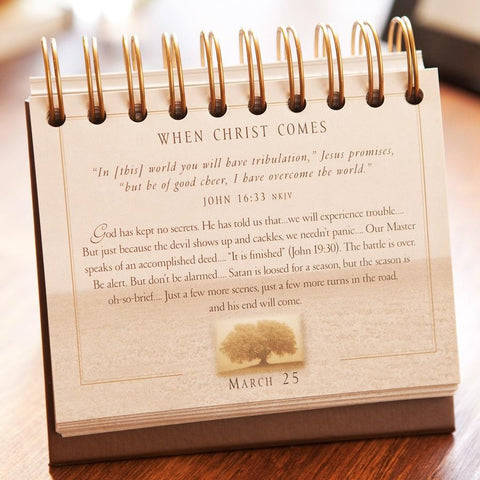 WHEN CHRIST COMES
“In [this] world you will have tribulation,” Jesus promises,
“but be of good cheer, I have overcome the world.”
JOHN 16:33 NKJV
God has kept no secrets. He has told us that...we will experience trouble....
But just because the devil shows up and cackles, we needn't panic.... Our Master
speaks of an accomplished deed.... “It is finished” (John 19:30). The battle is over.
Be alert. But don't be alarmed.... Satan is loosed for a season, but the season is
oh-so-brief.... Just a few more scenes, just a few more turns in the road,
and his end will come.
MARCH 25